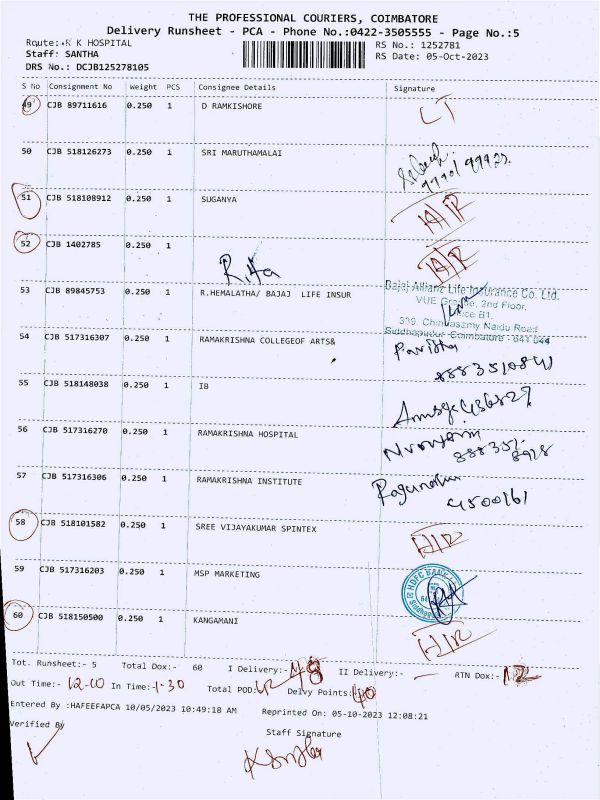 THE PROFESSIONAL COURIERS, COIMBATORE
Delivery Runsheet - PCA - Phone No.:0422-3505555 - Page No.:5
Route: K K HOSPITAL
RS No.: 1252781
Staff: SANTHA
RS Date: 05-Oct-2023
DRS No.: DCJB125278105
S No Consignment No Weight PCS Consignee Details Signature
49 CJB 89711616 0.250 1 D RAMKISHORE
50 CJB 518126273 0.250 1 SRI MARUTHAMALAI
51 CJB 518108912 0.250 1 SUGANYA
52 CJB 1402785 0.250 1
53 CJB 89845753 0.250 1 R.HEMALATHA/ BAJAJ LIFE INSUR
Bajaj Allianz Life Insurance Co. Ltd.
2nd Floor,
339, Chinnasamy Naidu Road
Siddhapudur Coimbatore - 641 044
54 CJB 517316307 0.250 1 RAMAKRISHNA COLLEGEOF ARTS&
55 CJB 518148038 0.250 1 IB
56 CJB 517316270 0.250 1 RAMAKRISHNA HOSPITAL
57 CJB 517316306 0.250 1 RAMAKRISHNA INSTITUTE
4500161
58 CJB 518101582 0.250 1 SREE VIJAYAKUMAR SPINTEX
59 CJB 517316203 0.250 1 MSP MARKETING
HDFC BANK
60 CJB 518150500 0.250 1 KANGAMANI
Tot. Runsheet:- 5 Total Dox:- 60 I Delivery:- 48 II Delivery:- — RTN Dox:- 12
Out Time:- 12-00 In Time:- 1-30 Total POD: Delvy Points: 40
Entered By :HAFEEFAPCA 10/05/2023 10:49:18 AM Reprinted On: 05-10-2023 12:08:21
Verified By
Staff Signature